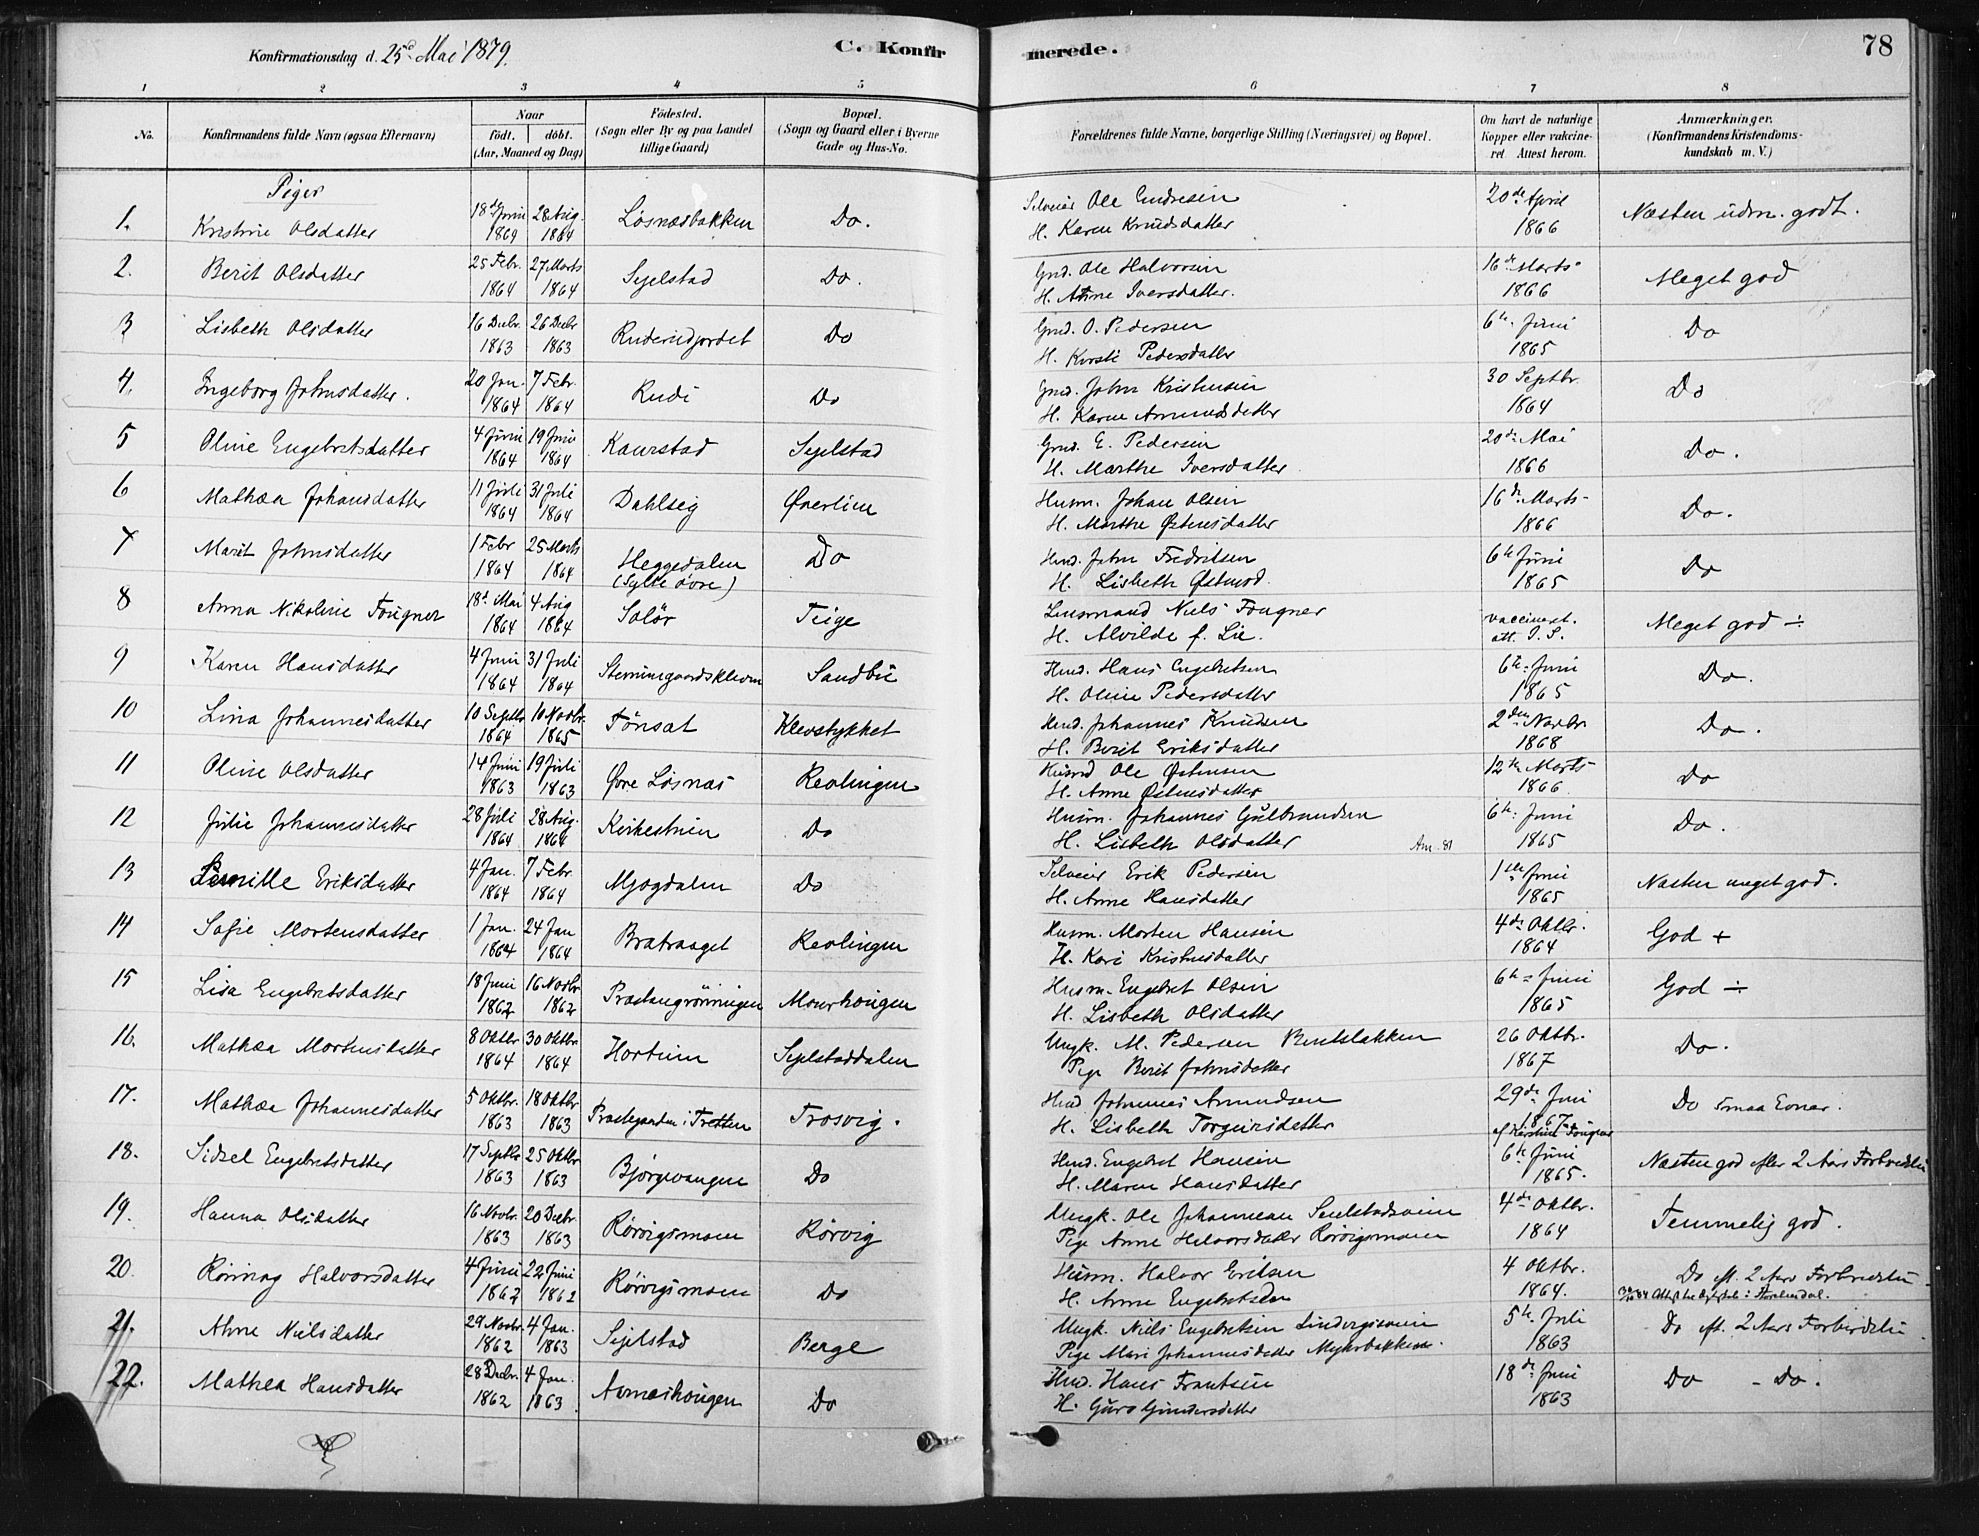 Konfirmationsdag d. 25de Mai 1879.
C. Konfirmerede.
78
1 2 3 4 5 6 7 8
No. Konfirmandens fulde Navn (ogsaa Efternavn) Naar født. døbt. (Aar, Maaned og Dag) Fødested. (Sogn eller By og paa Landet tillige Gaard) Bopæl. (Sogn og Gaard eller i Byerne Gade og Hus-No. Forældrenes fulde Navne, borgerlige Stilling (Næringsvei) og Bopæl. Om havt de naturlige Kopper eller vaccineret Attest herom. Anmærkninger. (Konfirmandens Kristendomskundskab m. V.)
Piger
1. Kristine Olsdatter 18de Juni 1864 28 Aug. 1864 Løsnæsbakken Do. Selveier Ole Endresen H. Karen Knudsdatter 20de April 1866 Næsten udm. godt.
2. Berit Olsdatter 25 Febr. 1864 27 Marts 1864 Sejelstad Do. Grd. Ole Halvorsen H. Anne Iversdatter. 16de Marts 1866 Meget god
3 Lisbeth Olsdatter 16 Decbr. 1863 26 Decbr 1863 Do Grd. O. Pedersen H. Kirsti Pedersdatter 6te Juni 1865 Do
4. Ingeborg Johnsdatter. 20 Jan. 1864 7 Febr. 1864 Rudi Do Grd. John Kristensen H. Karen Amundsdatter 30 Septbr. 1864 Do
5 Oline Engebretsdatter 4 Juni 1864 19 Juni 1864 Kaurstad Sejelstad Grd. E. Pedersen H. Marthe Iversdatter 20de Mai 1866 Do.
6 Mathea Johansdatter 11 Juli 1864 31 Juli 1864 Dahlseg Øverlien Husm. Johan Olsen H. Marthe Østensdatter 16de Marts 1866 Do.
7 Marit Johnsdatter 1 Febr 1864 25 Marts 1864 Heggedalen (Sylte øvre) Do Hmd. John Fredriksen H. Lisbeth Østensd. 6te Juni 1865 Do
8 Anna Nikoline Fougner 18de Mai 1864 4 Aug 1864 Solør Teige Lensmand Niels Fougner H. Alvilde f. Lie. vaccineret. att. I. S. Meget god ÷
9 Karen Hansdatter 4 Juni 1864 31 Juli 1864 Sandbu Hmd. Hans Engebretsen H. Oline Pedersdatter 6te Juni 1865 Do.
10 Lina Johannesdatter 10 Septbr 1864 10 Novbr. 1865 Tønsæt Klevstykket Hmd. Johannes Knudsen H. Berit Eriksdatter 2den Novbr. 1868 Do.
11 Oline Olsdatter 14 Juni 1863 19 Juli 1863 Øvre Løsnæs Revlingen Husmd Ole Østensen H. Anne Østensdatter 12te Marts 1866 Do
12 Julie Johannesdatter 28 Juli 1864 28 Aug. 1864 Kirkestuen Do Husm. Johannes Gulbrandsen H. Lisbeth Olsdatter Am. 81 6te Juni 1865 Do.
13 Pernille Eriksdatter 4 Jan. 1864 7 Febr. 1864 Mjogdalen Do Selveier Erik Pedersen H. Anne Hansdatter 1ste Juni 1865 Næsten meget god.
14 Sofie Mortensdatter 1 Jan. 1864 24 Jan 1864 Bratvaaget Revlingen Husm. Morten Hansen H. Kari Kristensdatter 4de Oktbr. 1864 God +
15 Lisa Engebretsdatter 18 Juni 1862 16 Novbr 1862 Maurhougen Husm. Engebret Olsen H. Lisbeth Olsdatter 6te Juni 1865 God ÷
16. Mathea Mortensdatter 8 Oktbr 1864 30 Oktbr 1864 Hortun Sejelstaddalen Ungk. M. Pedersen Pige Berit Johnsdatter 26 Oktbr. 1867 Do.
17. Mathea Johannesdatter 5 Oktbr. 1863 18 Oktbr 1863 Præstegaarden i Tretten Trosvig. Hmd Johannes Amundsen H. Lisbeth Torgeirsdatter 29de Juni 1867 af Kirstine Fougner Do smaa Evner.
18. Sidsel Engebretsdatter 17 Septbr 1863 25 Oktbr 1863 Bjørgevangen Do Hmd. Engebret Hansen H. Maren Hansdatter 6te Juni 1865. Næsten god efter 2 Aars Forberedelse
19. Hanna Olsdatter 16 Novbr. 1863 20 Decbr. 1863 Rørvigsmoen Rørvig Ungk. Ole Johannesen Pige Anne Halvorsdatter Rørvigsmoen 4de Oktbr. 1864 Temmelig god.
20. Rønnog Halvorsdatter 4 Juni 1862 22 Juni 1862 Rørvigsmoen Do Husm. Halvor Eriksen H. Anne Engebretsdtr 4 Oktbr. 1864. Do eft. 2 Aars Forberedelse
21. Anne Nielsdatter 29 Novbr. 1862 4 Jan. 1863 Sejelstad Berge Ungk. Niels Engebretsen Pige Mari Johannesdatter Myhrbakken 5te Juli 1863 Do eft. 2 Aars Forberedelse
22. Mathea Hansdatter 28 Decbr. 1862 4 Jan. 1863 Do Hmd. Hans Frantsen H. Guro Gundersdatter 18de Juni 1863 Do - Do.